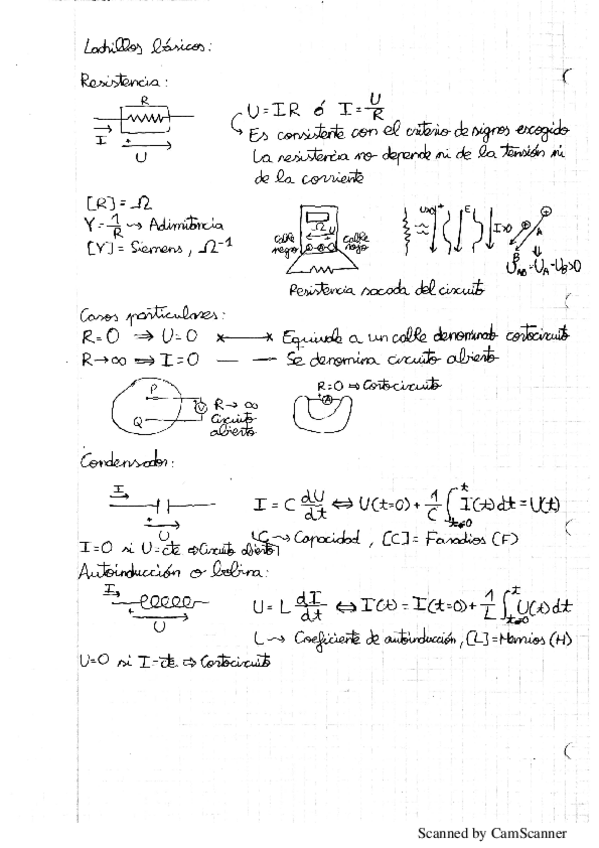 Ladrillos básicos:
Resistencia:
R
I
U
U = I R ó I = U/R
Es consistente con el criterio de signos escogido
La resistencia no depende ni de la tensión ni
de la corriente
[R] = Ω
Y = 1/R → Adimitancia
[Y] = Siemens, Ω⁻¹
Ω U
cable negro
cable rojo
Resistencia sacada del circuito
U>0 + E I>0
A
B
U_AB = U_A - U_B > 0
Casos particulares:
R = 0 ⇒ U = 0 Equivale a un cable denominado cortocircuito
R → ∞ ⇒ I = 0 Se denomina circuito abierto
P
Q
V
R → ∞
Circuito
abierto
R = 0 ⇒ Cortocircuito
A
Condensador:
I
U
I = C dU/dt ⇔ U(t=0) + 1/C ∫_{t=0}^{t} I(t) dt = U(t)
C → Capacidad, [C] = Faradios (F)
I = 0 si U = cte ⇒ Circuito abierto
Autoinducción o bobina:
I
U
U = L dI/dt ⇔ I(t) = I(t=0) + 1/L ∫_{t=0}^{t} U(t) dt
L → Coeficiente de autoinducción, [L] = Henrios (H)
U = 0 si I = cte ⇒ Cortocircuito
Scanned by CamScanner